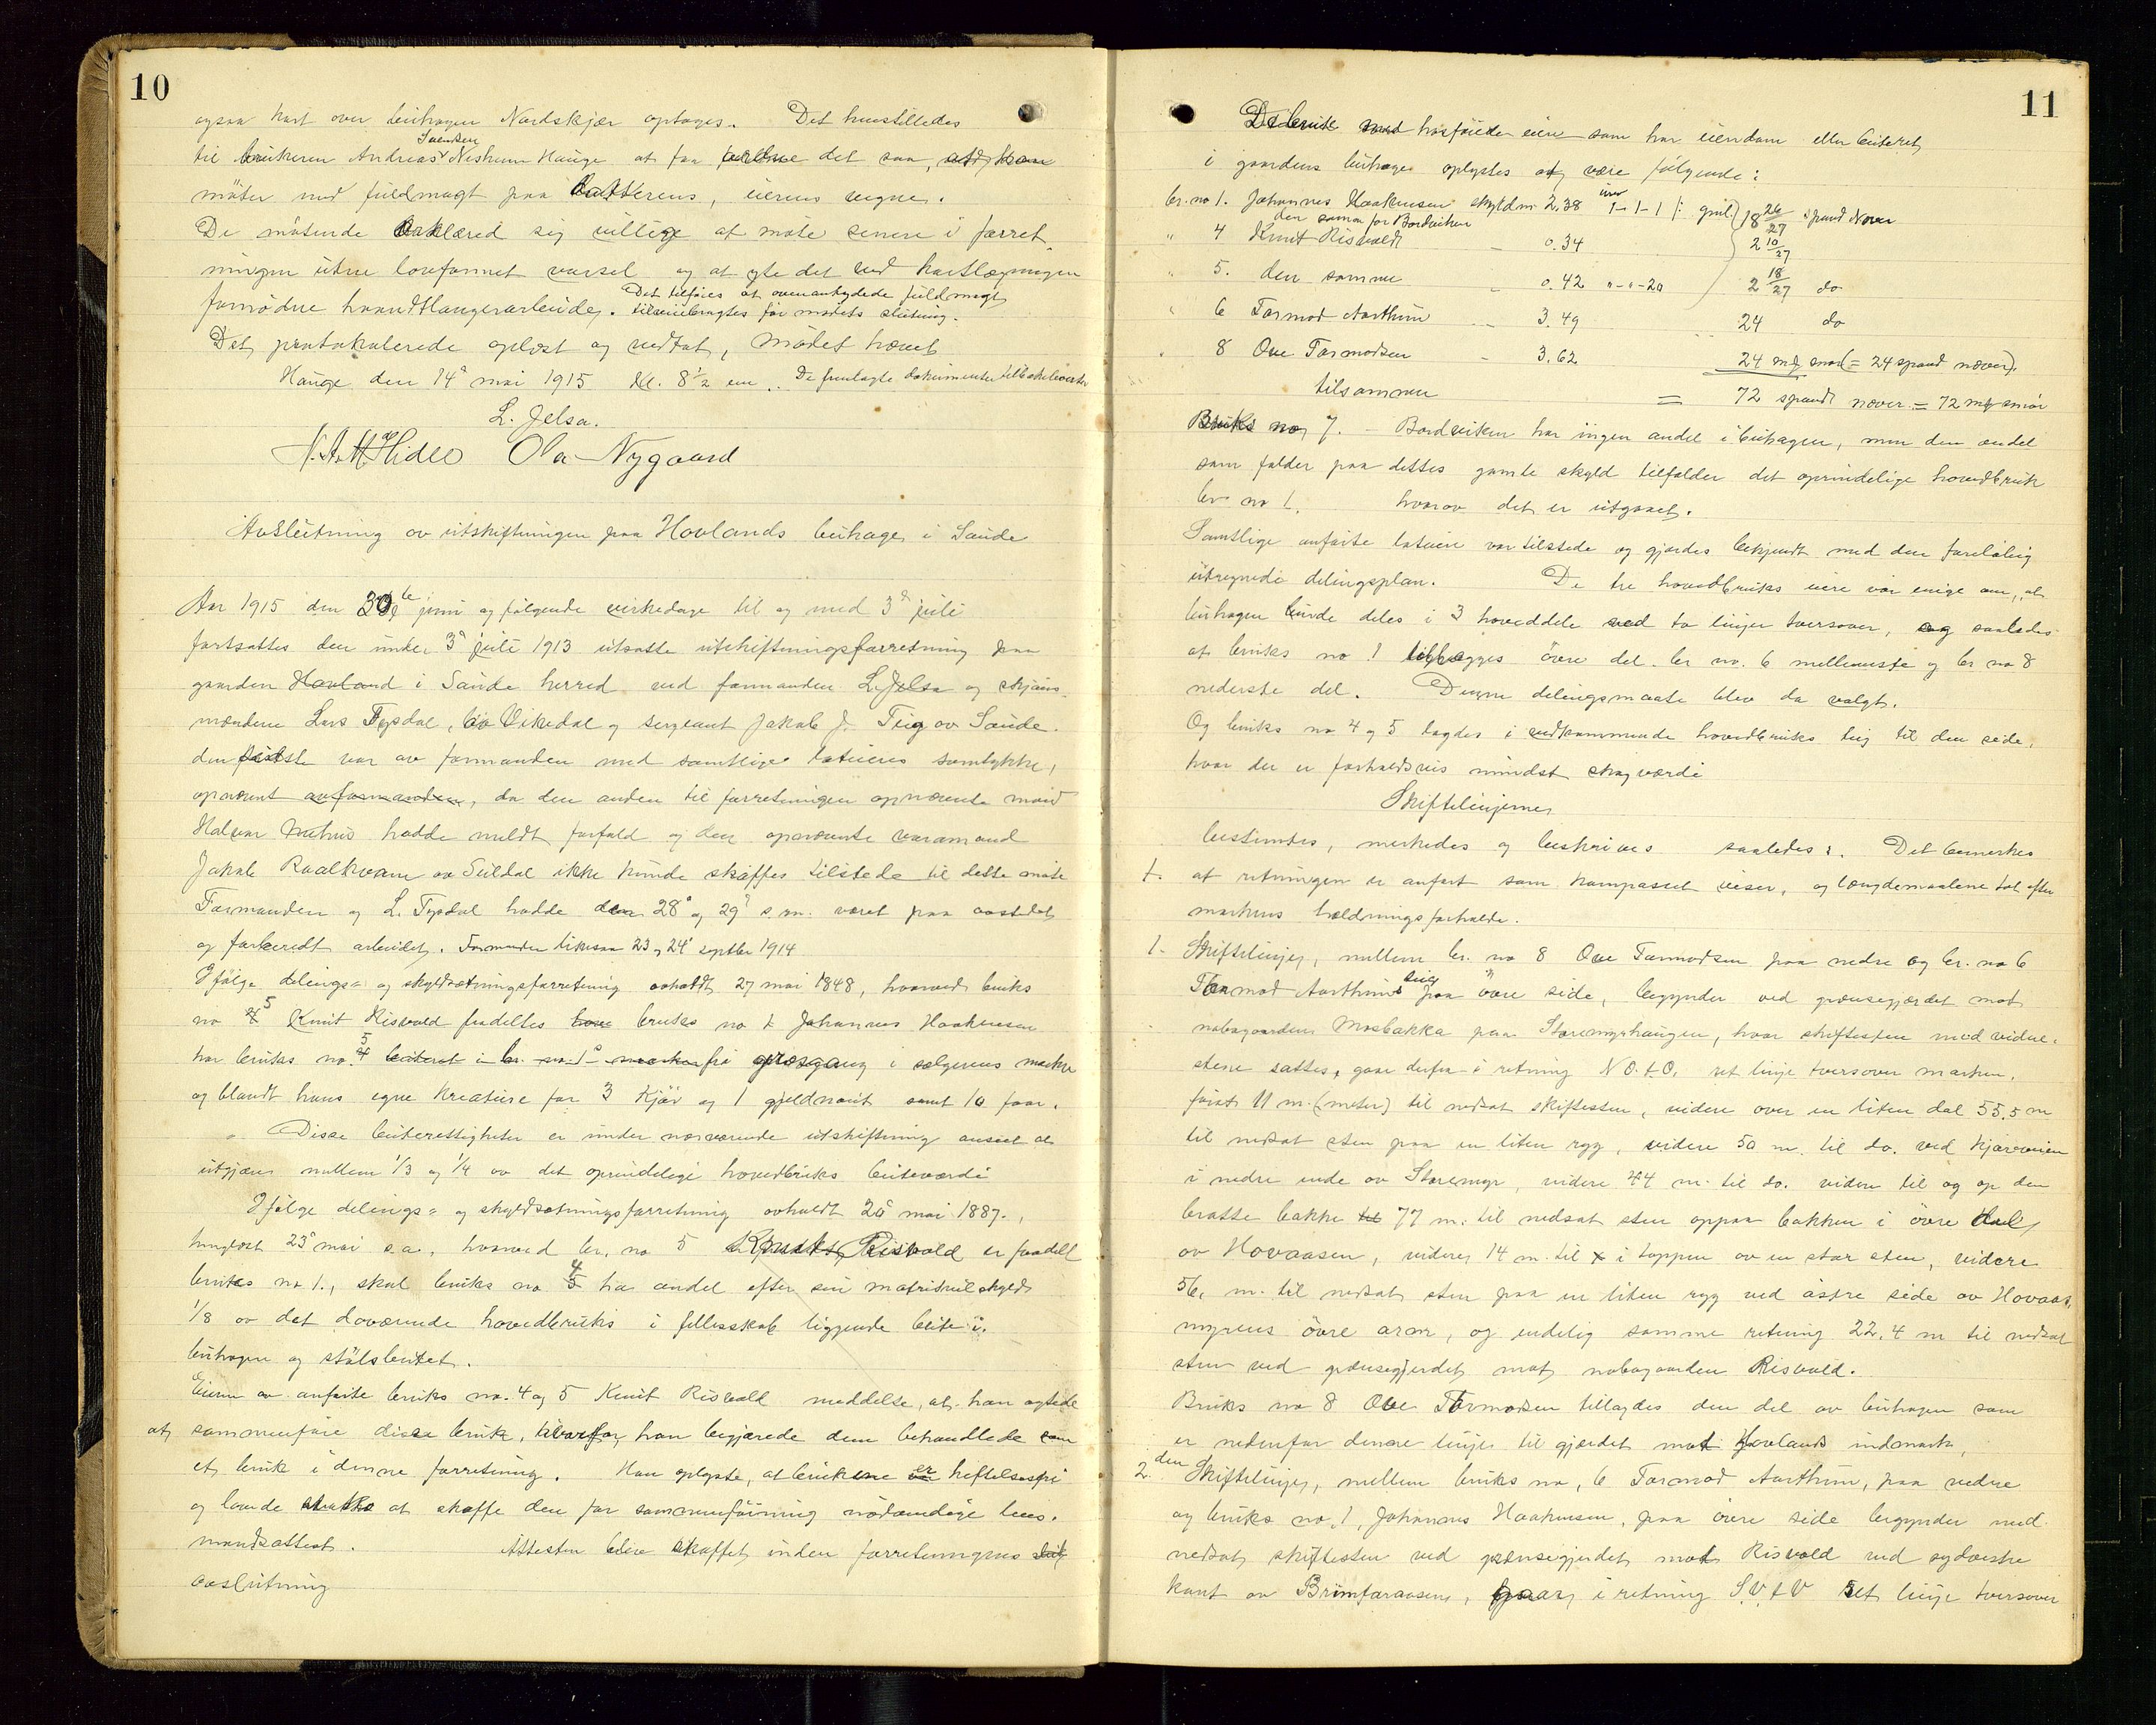 10
ogsaa kart over beitehagen Nordskjær optages. Det henstilledes
Svendsen
til brukeren Andreas Neshun Hauge at faa det saa,
møter med fuldmagt paa datterens, eierens vegne.
De møtende erklæred sig villige at møte senere i forret-
ningen uten loveformet varsel og at yte det ved kartlægningen
fornødne haandtlangerarbeide. Det tilføies at ovenantydede fuldmagt
tilveiebragtes før mødets slutning.
Det protokolerede oplæst og vedtat, mødet hævet
Hauge den 14de mai 1915 kl. 8½ em. De fremlagte dokumenter tilbakeleverte
L. Jelsa.
Ola Nygaard
Avslutning av utskiftningen paa Hovlands beitehage i Saude
Aar 1915 den 30te juni og følgende virkedage til og med 3de juli
fortsattes den under 3de juli 1913 utsatte utskiftningsforretning paa
gaarden Hovland i Saude herred ved formanden L. Jelsa og skjøns-
mændene Lars Tysdal, av Vikedal og sergeant Jakob J. Teig av Saude.
den sidste var av formanden med samtlige lotteieres samtykke,
opnævnt av formanden, da den anden til forretningen opnævnte mand
Halvor hadde meldt forfald og den opnævnte varamand
Jakob Raalkvam av Suldal ikke kunde skaffes tilstede til dette møte
Formanden og L. Tysdal hadde den 28de og 29de s.m. været paa aastedet
og forberedt arbeidet. Formanden likesaa 23 og 24de septbr 1914
Ifølge delings- og skyldsætningsforretning avholdt 27 mai 1848, hvorved bruks
no 5 Knut Risvold fradeltes bruks no 1 Johannes Haakensen
har bruks no. 5 beiteret i br. no 1s marker fri græsgang i sælgerens marker
og blandt hans egne kreature for 3 kjør og 1 gjeldnaut samt 10 faar.
Disse beiterettigheter er under nærværende utskiftning anseet at
utgjøre mellem 1/3 og 1/4 av det oprindelige hovedbruks beiteværdi
Ifølge delings- og skyldsætningsforretning avholdt 20de mai 1887.,
tinglæst 23de mai s.a., hvorved br. no 5 Knut Risvold er fradelt
bruks no 1., skal bruks no 4 ha andel efter sin matrikulskyld
1/8 av det daværende hovedbruks i fellesskab liggende beite i
beitehagen og stølsbeitet.
Eieren av anførte bruks no. 4 og 5 Knut Risvold meddelte, at han agtede
at sammenføie disse bruk, hvorfor han begjærede dem behandlede som
et bruk i denne forretning. Han oplyste, at brukene er heftelsesfri
og lovede straks at skaffe den for sammenføining nødvendige lens-
mandsattest. Attesten blev skaffet inden forretningens
avslutning
11
De bruk med hosføiede eiere som har eiendom eller beiteret
i gaardens beitehage oplystes at være følgende:
br. no 1. Johannes Haakensen skyldm. 2,38 1-1-1 (: gml. 18 26/27 spand Nover
den samme for Bordviken
" 4 Knut Risvold - 0.34 2 10/27
" 5. den samme - 0.42 "-"-20 2 18/27 do
" 6 Tormod Aarthun - 3.49 24 do
" 8 Ove Tormodsen - 3.62 24 mg smør (= 24 spand nover).
tilsammen = 72 spand nover = 72 mg smør
Bruks no 7. - Bordviken har ingen andel i beitehagen, men den andel
som falder paa dettes gamle skyld tilfalder det oprindelige hovedbruk
br. no 1. hvorav det er utgaaet.
Samtlige anførte lotteiere var tilstede og gjordes bekjendt med den foreløbig
utregnede delingsplan. De tre hovedbruks eiere var enige om, at
beitehagen burde deles i 3 hoveddele ved to linjer tversover, og saaledes
at bruks no 1 tillægges øvre del. br no. 6 mellemste og br no 8
nederste del. Denne delingsmaate blev da valgt.
Og bruks no 4 og 5 lagdes i vedkommende hovedbruks teig til den side,
hvor der er forholdsvis mindst skogværdi
Skiftelinjerne
bestemtes, merkedes og beskrives saaledes: Det bemerkes
†. at retningen er anført som kompasset viser, og længdemaalene tat efter
markens hældningsforholde.
1. Skiftelinjen, mellem br. no 8 Ove Tormodsen paa nedre og br. no 6
Tormod Aarthuns teig paa øvre side, begynder ved grænsegjerdet mot
nabogaarden Mosbakka paa Storemyrhaugen, hvor skiftesten med vidne-
stene sattes, gaar derfra i retning NO.t.O. ret linje tversover marken.
først 11 m. (meter) til nedsat skiftesten, videre over en liten dal 55,5 m
til nedsat sten paa en liten ryg, videre 50 m. til do. ved kjøreveien
i nedre ende av Storemyr, videre 44 m. til do. videre til og op den
bratte bakke 77 m. til nedsat sten oppaa bakken i øvre del
av Hovaasen, videre 14 m. til x i toppen av en stor sten, videre
56, m. til nedsat sten paa en liten ryg ved østre side av Hovaas-
myrens øvre arm, og endelig samme retning 22.4 m til nedsat
sten ved grænsegjerdet mot nabogaarden Risvold.
Bruks no 8 Ove Tormodsen tillagdes den del av beitehagen som
er nedenfor denne linje til gjerdet mot Hovlands indmark,
2. den Skiftelinje, mellem bruks no, 6 Tormod Aarthun, paa nedre
og bruks no. 1, Johannes Haakensen, paa øvre side begynder med
nedsat skiftesten ved grænsegjerdet mot Risvold ved sydvestre
kant av Brimfaraasen, gaar i retning S.V.t.V ret linje tversover